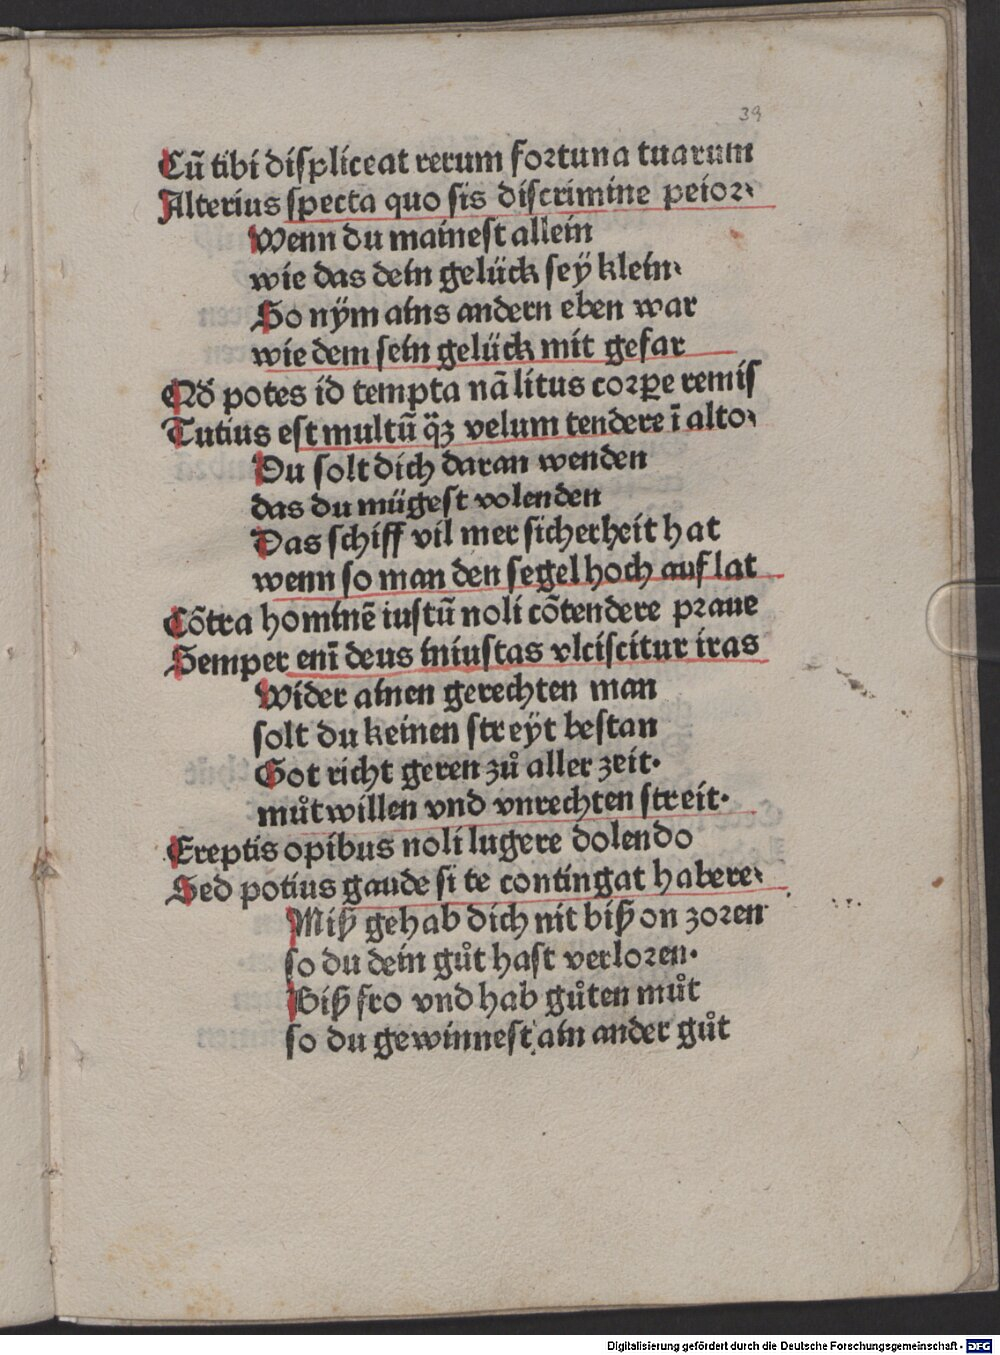 39
Cū tibi displiceat rerum fortuna tuarum
Alterius specta quo sis discrimine peior
Wenn du mainest allein
wie das dein gelück seÿ klein
So nÿm ains andern eben war
wie dem sein gelück mit gefar
Qd̛ potes id tempta nā litus corꝑe remis
Tutius est multū q̈ꝫ velum tendere ī alto
Du solt dich daran wenden
das du mügest volenden
Das schiff vil mer sicherheit hat
wenn so man den segel hoch auf lat
Cōtra hominē iustū noli cōtendere praue
Semper enī deus iniustas vlciscitur iras
Wider ainen gerechten man
solt du keinen streÿt bestan
Got richt geren zů aller zeit·
můtwillen vnd vnrechten streit·
Ereptis opibus noli lugere dolendo
Sed potius gaude si te contingat habere
Miß gehab dich nit biß on zoren
so du dein gůt hast verloren·
Biß fro vnd hab gůten můt
so du gewinnest ain ander gůt
Digitalisierung gefördert durch die Deutsche Forschungsgemeinschaft - DFG